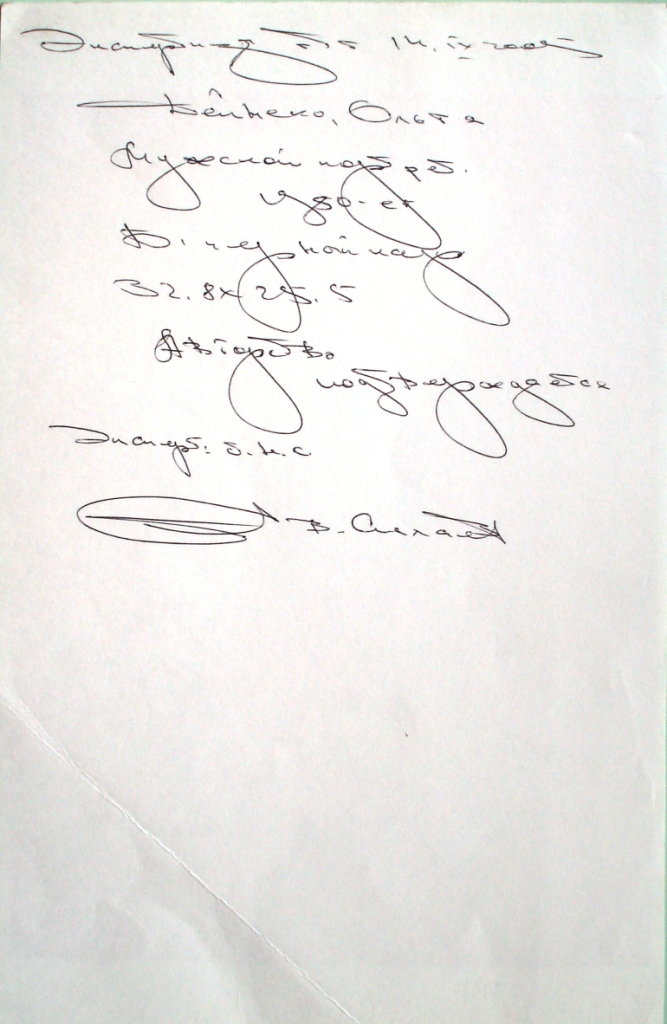 Экспертиза от 14.IX 2005
Ольга
Мужской портрет.
1980-ет
Б. черной кар
32.8х25.5
Авторство
подтверждается
Эксперт: с.н.с
В. Силаев